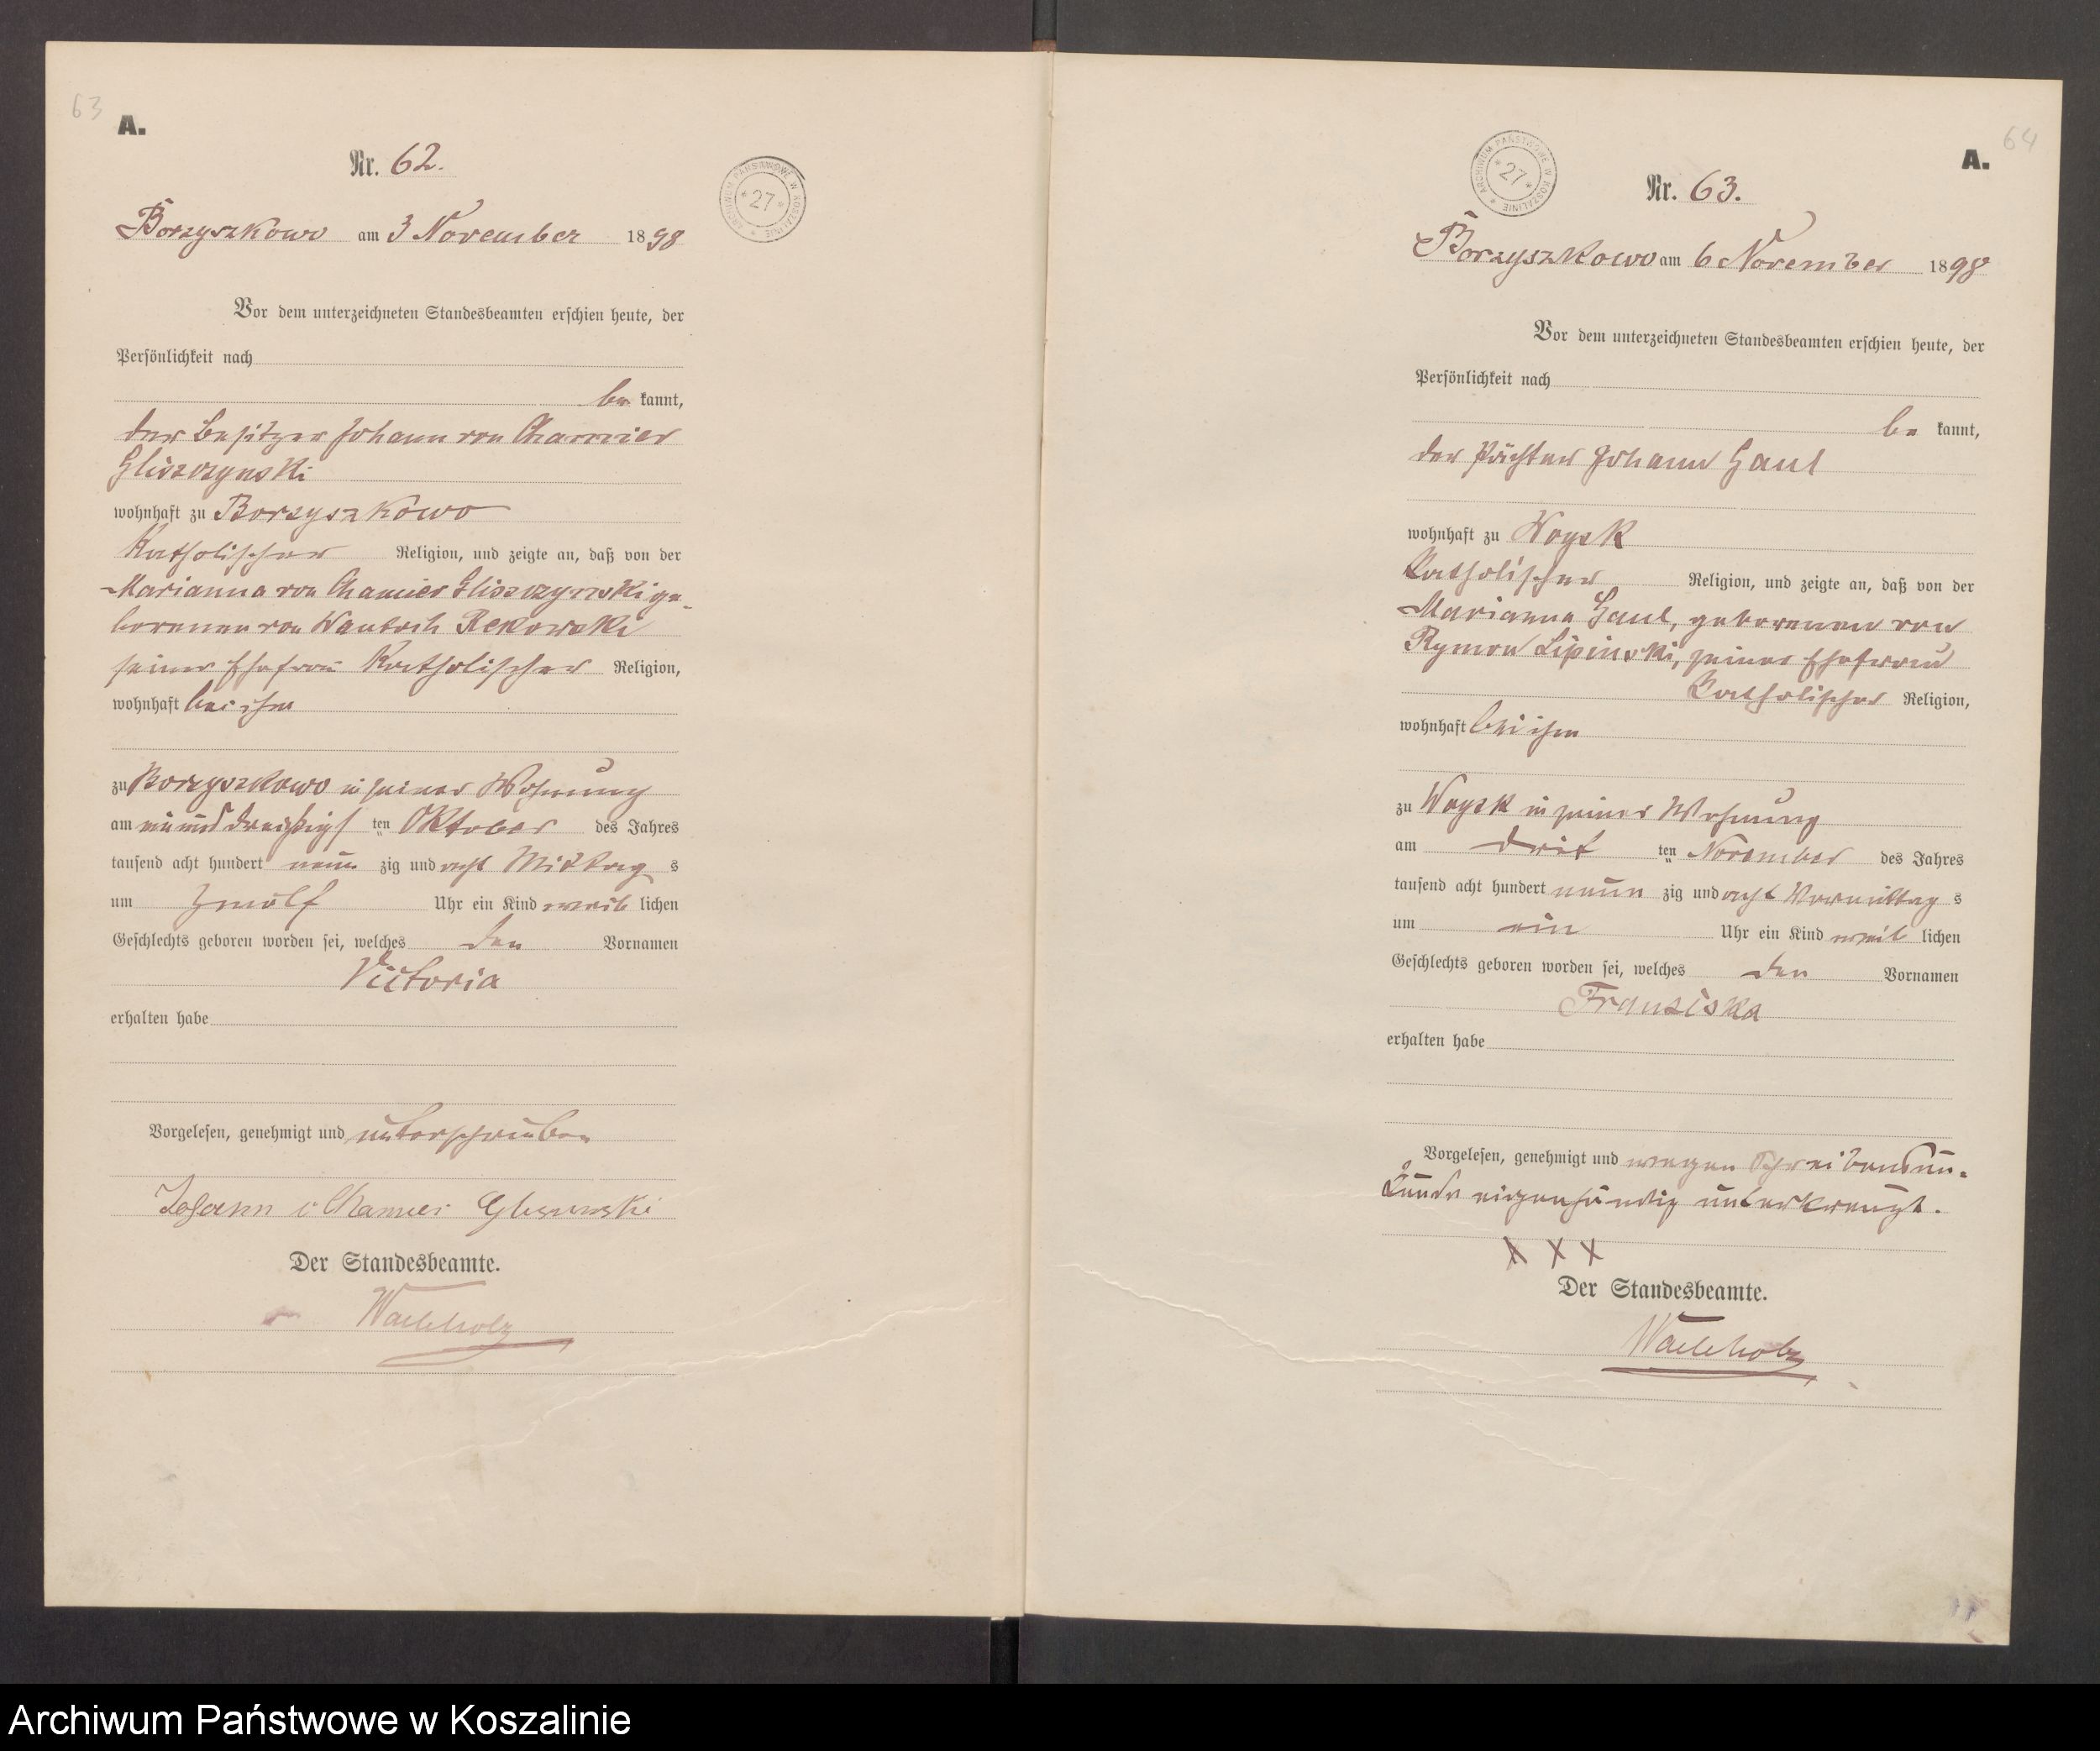 63
A.
Nr. 62.
ARCHIWUM PAŃSTWOWE W KOSZALINIE * 27 *
Borzyszkowo am 3 November 1898
Vor dem unterzeichneten Standesbeamten erschien heute, der
Persönlichkeit nach
be kannt,
der Besitzer Johann von Chamier
Gliszczynski
wohnhaft zu Borzyszkowo
Katholischer Religion, und zeigte an, daß von der
Marianna von Chamier Gliszczynski ge-
borenen von Wantoch Rekowski
seiner Ehefrau Katholischer Religion,
wohnhaft bei ihm
zu Borzyszkowo in seiner Wohnung
am einund dreißigs ten Oktober des Jahres
tausend acht hundert neun zig und acht Mittag s
um zwölf Uhr ein Kind weib lichen
Geschlechts geboren worden sei, welches den Vornamen
Victoria
erhalten habe
Vorgelesen, genehmigt und unterschrieben
Johann v Chamier Glisczinski
Der Standesbeamte.
Wachholz
64
A.
ARCHIWUM PAŃSTWOWE W KOSZALINIE * 27 *
Nr. 63.
Borzyszkowo am 6 November 1898
Vor dem unterzeichneten Standesbeamten erschien heute, der
Persönlichkeit nach
be kannt,
der Pächter Johann Gaul
wohnhaft zu Woysk
Katholischer Religion, und zeigte an, daß von der
Marianna Gaul, geborenen von
Rymon Lipinski, seiner Ehefrau
Katholischer Religion,
wohnhaft bei ihm
zu Woysk in seiner Wohnung
am drit ten November des Jahres
tausend acht hundert neun zig und acht Vormittag s
um ein Uhr ein Kind weib lichen
Geschlechts geboren worden sei, welches den Vornamen
Franziska
erhalten habe
Vorgelesen, genehmigt und wegen Schreibensun-
kunde eigenhändig unterkreuzt.
X X X
Der Standesbeamte.
Wachholz
Archiwum Państwowe w Koszalinie